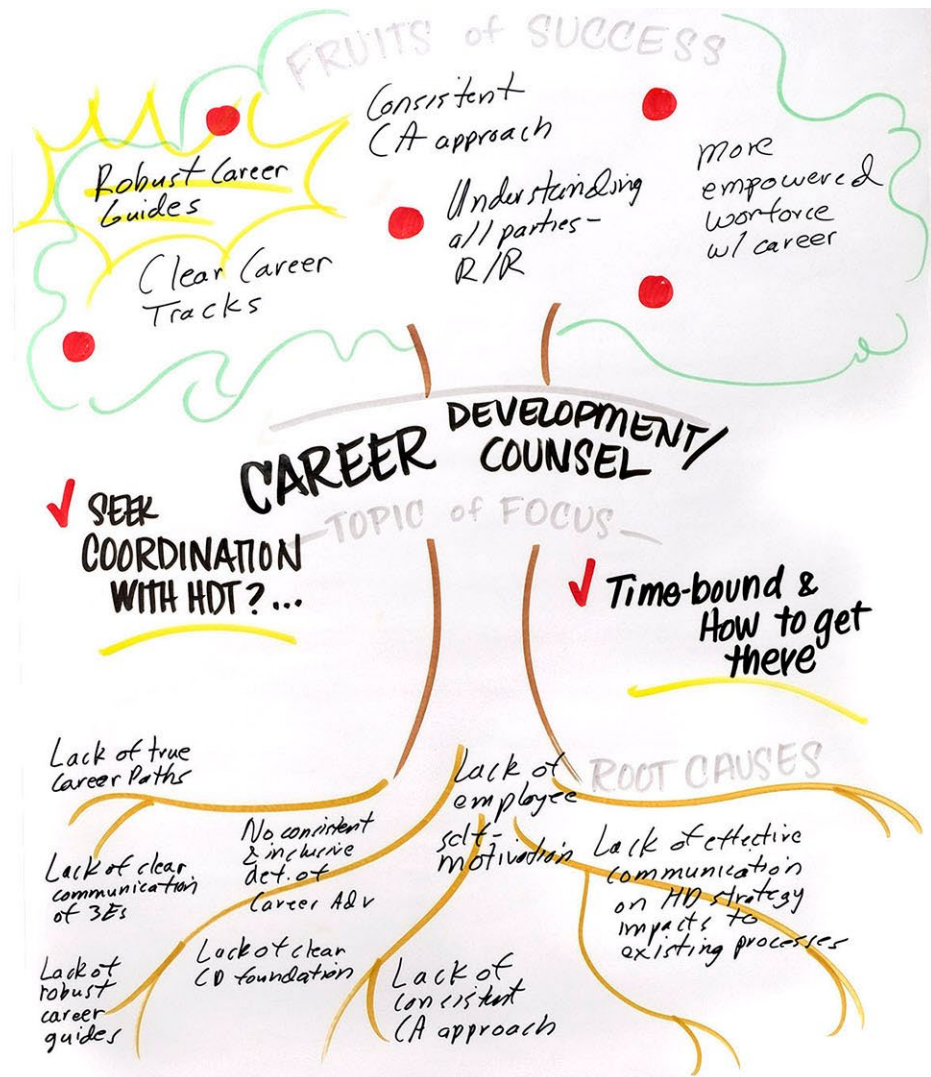 FRUITS of SUCCESS
Consistent
CA approach
Robust Career
Guides
Understainding
all parties-
R/R
more
empowered
worforce
w/ career
Clear Career
Tracks
CAREER DEVELOPMENT/
COUNSEL
TOPIC of FOCUS
SEEK
COORDINATION
WITH HDT?...
Time-bound &
How to get
there
ROOT CAUSES
Lack of true
Career Paths
Lack of clear
communication
of 3Es
Lack of
robust
career
guides
No consistent
& inclusive
def. of
Career Adv
Lack of clear
CD foundation
Lack of
employee
self-
motivation
Lack of
consistent
CA approach
Lack of effective
communication
on HD strategy
impacts to
existing processes